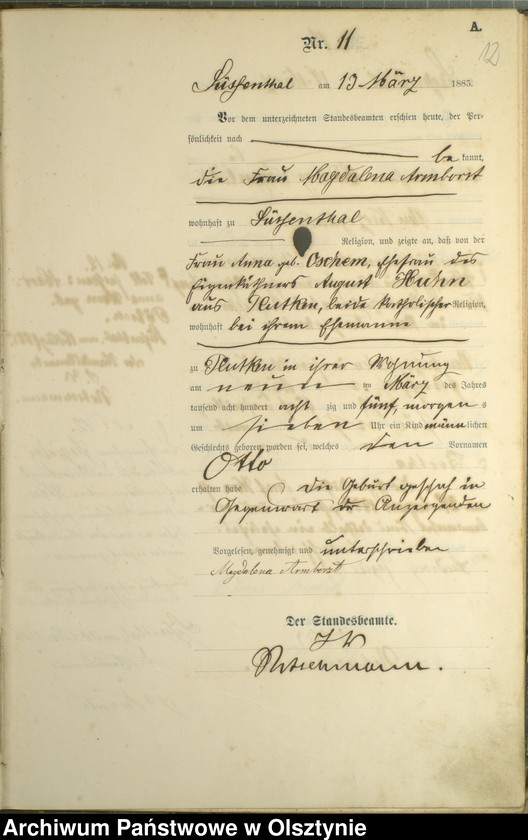 A.
12
Nr. 11
Süßenthal am 13 März 1885.
Vor dem unterzeichneten Standesbeamten erschien heute, der Per-
sönlichkeit nach
be kannt,
die Frau Magdalena Armborst
wohnhaft zu Süßenthal
Religion, und zeigte an, daß von der
Frau Anna geb. Oschem, Ehefrau des
Eigenkäthners August Huhn
aus Plutken, beide katholischer Religion,
wohnhaft bei ihrem Ehemanne
zu Plutken in ihrer Wohnung
am neun ten März des Jahres
tausend acht hundert acht zig und fünf, morgen s
um sieben Uhr ein Kind männlichen
Geschlechts geboren worden sei, welches den Vornamen
Otto
erhalten habe Die Geburt geschah in
Gegenwart der Anzeigenden
Vorgelesen, genehmigt und unterschrieben
Magdalena Armborst
Der Standesbeamte.
IV
Archiwum Państwowe w Olsztynie